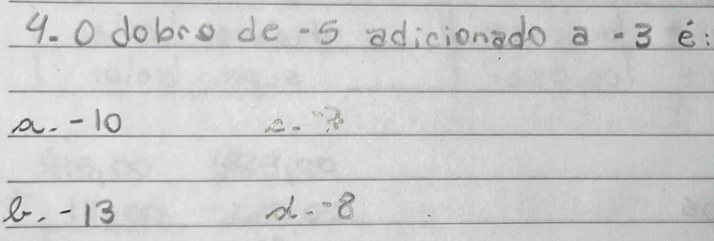 4. O dobro de -5 adicionado a -3 é:
a. -10 c. -7
b. -13 d. -8